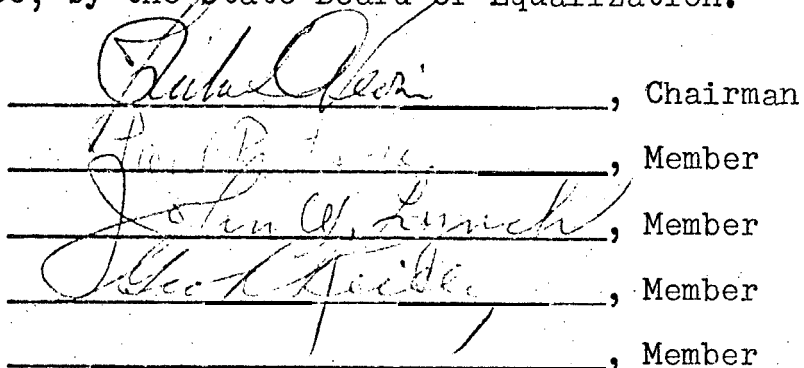 by the State Board of Equalization.
, Chairman
, Member
John W. Lynch, Member
Geo. R. Reilly, Member
, Member